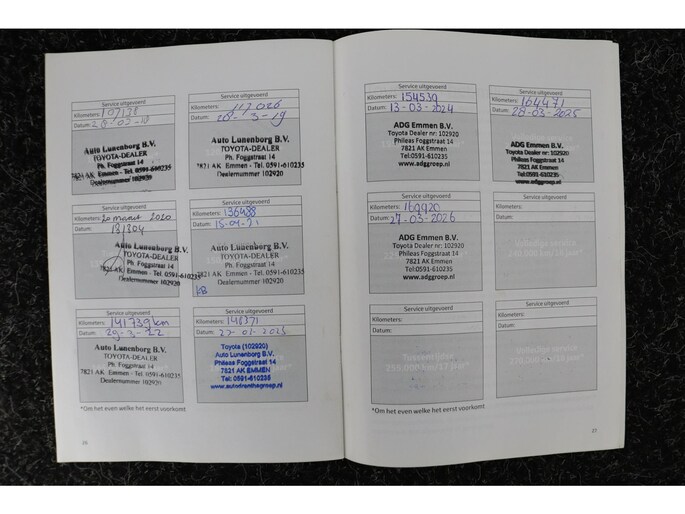 Service uitgevoerd
Kilometers: 107138
Datum:
Auto Lunenborg B.V.
TOYOTA-DEALER
Ph. Foggstraat 14
7821 AK Emmen - Tel. 0591-610235
Dealernummer 102920
Service uitgevoerd
Kilometers: 117026
Datum: 28-3-19
Auto Lunenborg B.V.
TOYOTA-DEALER
Ph. Foggstraat 14
7821 AK Emmen - Tel. 0591-610235
Dealernummer 102920
Service uitgevoerd
Kilometers: 20 maart 2020
Datum: 131804
Auto Lunenborg B.V.
TOYOTA-DEALER
Ph. Foggstraat 14
7821 AK Emmen - Tel. 0591-610235
Dealernummer 102920
Service uitgevoerd
Kilometers: 136488
Datum: 15-04-21
Auto Lunenborg B.V.
TOYOTA-DEALER
Ph. Foggstraat 14
7821 AK Emmen - Tel. 0591-610235
Dealernummer 102920
Service uitgevoerd
Kilometers: 141739km
Datum: 29-3-22
Auto Lunenborg B.V.
TOYOTA-DEALER
Ph. Foggstraat 14
7821 AK Emmen - Tel. 0591-610235
Dealernummer 102920
Service uitgevoerd
Kilometers: 148371
Datum:
Toyota (102920)
Auto Lunenborg B.V.
Phileas Foggstraat 14
7821 AK EMMEN
Tel: 0591-610235
*Om het even welke het eerst voorkomt
26
Service uitgevoerd
Kilometers: 154539
Datum: 13-03-2024
ADG Emmen B.V.
Toyota Dealer nr: 102920
Phileas Foggstraat 14
7821 AK Emmen
Tel:0591-610235
www.adggroep.nl
Service uitgevoerd
Kilometers: 164471
Datum: 28-03-2025
ADG Emmen B.V.
Toyota Dealer nr: 102920
Phileas Foggstraat 14
7821 AK Emmen
Tel:0591-610235
www.adggroep.nl
Service uitgevoerd
Kilometers: 169920
Datum: 27-03-2026
ADG Emmen B.V.
Toyota Dealer nr: 102920
Phileas Foggstraat 14
7821 AK Emmen
Tel:0591-610235
www.adggroep.nl
Service uitgevoerd
Kilometers:
Datum:
Volledige service
240.000 km/16 jaar*
Service uitgevoerd
Kilometers:
Datum:
Tussentijdse
255.000 km/17 jaar*
Service uitgevoerd
Kilometers:
Datum:
*Om het even welke het eerst voorkomt
27